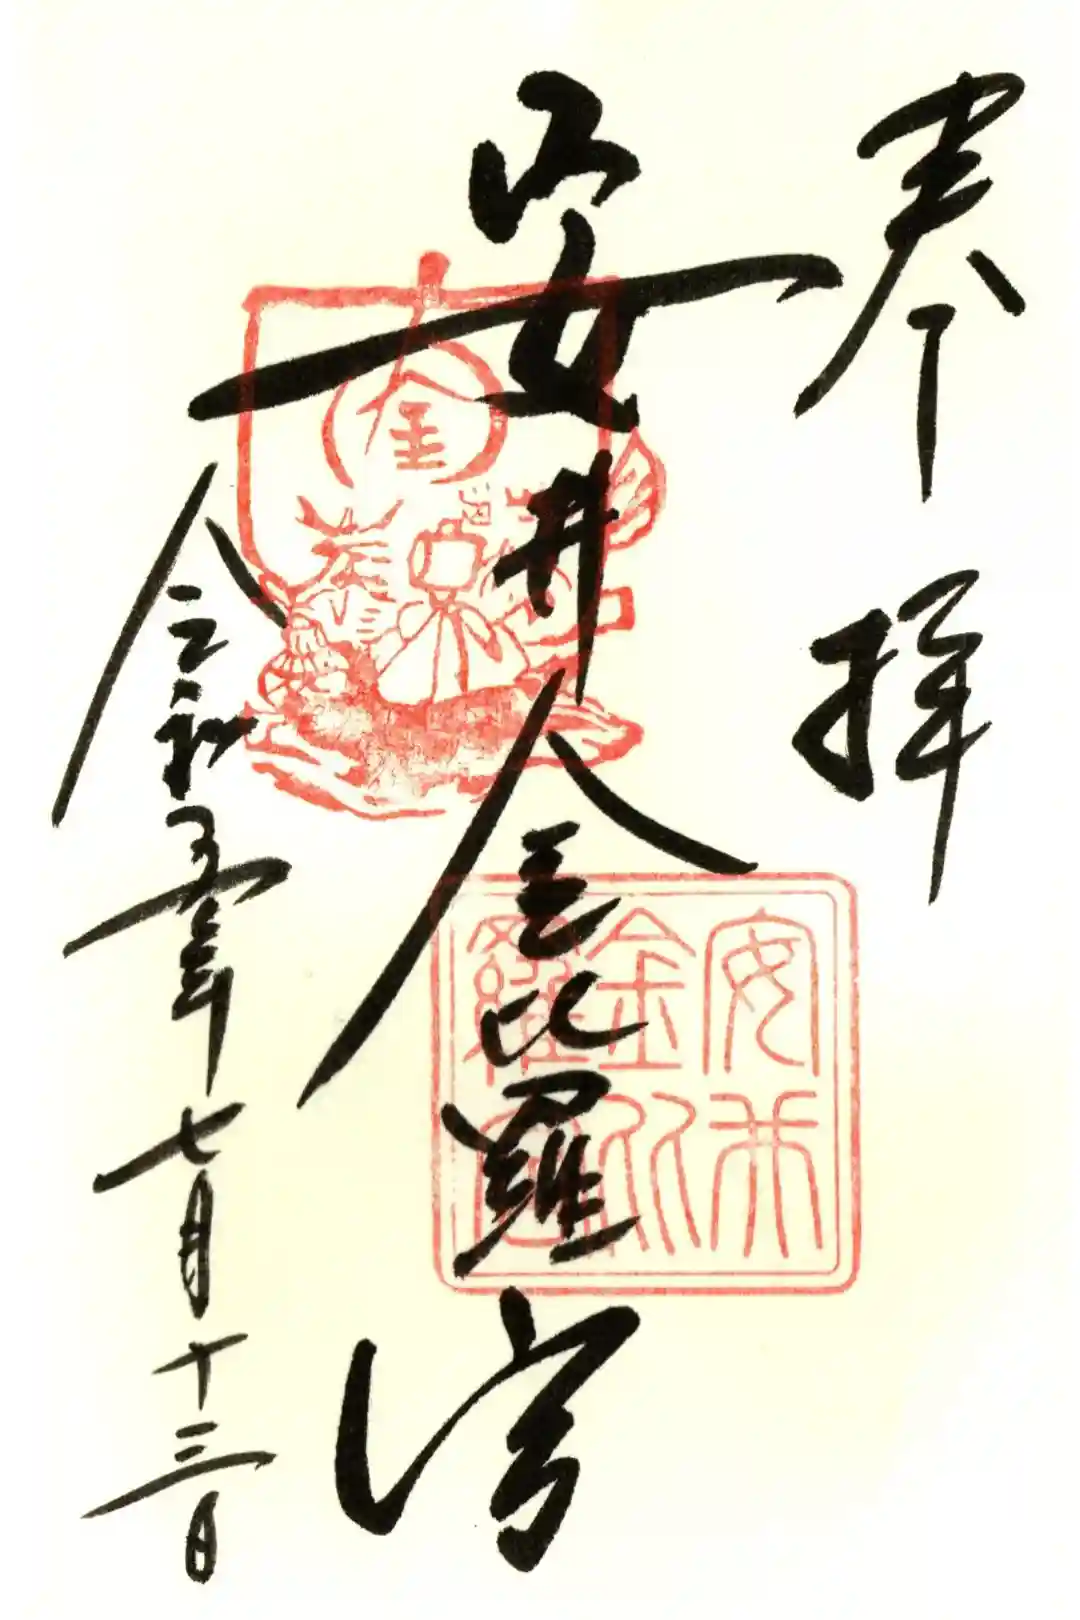 奉拝
安井金比羅宮
令和五年七月十三日
金
安井
金比
羅宮